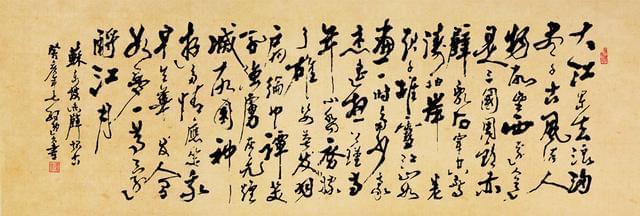 大江東去浪淘
盡千古風流人
物故壘西邊人道
是三國周郎赤
壁亂石穿空驚
濤拍岸卷
起千堆雪江山如
畫一時多少豪
傑遙想公瑾當
年小喬初嫁
了雄姿英發羽
扇綸巾談笑
間強虜灰飛煙
滅故國神遊
多情應笑我
早生華髮人間
如夢一尊還
酹江月
蘇子瞻赤壁懷古
癸亥年七 書